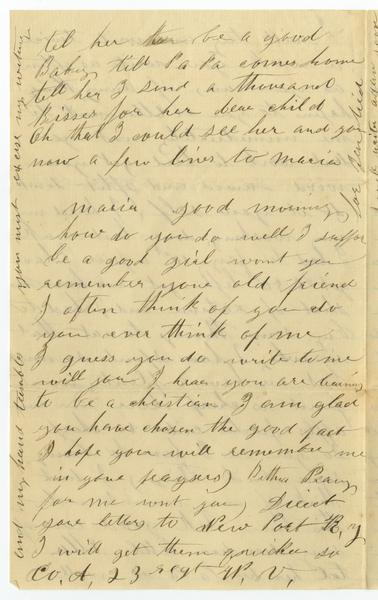 tel her be a good
Baby till Pa Pa comes home
tell her I send a thousand
Kisses for her dear child
Oh that I could see her and you
now a few lines to maria
maria good morning
how do you do well I suppos
be a good girl wont you
remember youre old friend
I often think of you do
you ever think of me
I guess you do write to me
will you I hear you are trying
to be a christian I am glad
you have chosen the good part
I hope you will remember me
in youre prayers
for me wont you Direct
youre letters to New Port
I will get them quicker so
Co. A, 23 regt W. V,
and my hand tremble you must excuse my writing